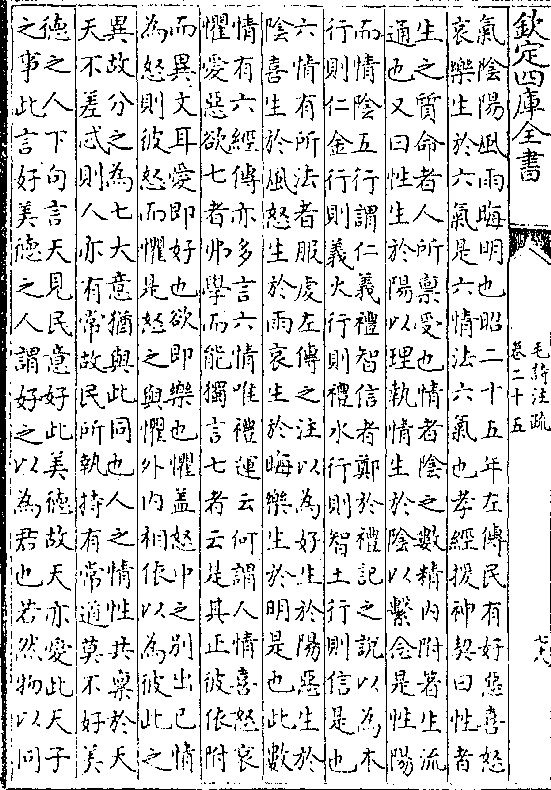 欽定四庫全書
毛詩注疏
卷二十五
氣陰陽風雨晦明也昭二十五年左傳民有好惡喜怒
哀樂生於六氣是六情法六氣也孝經援神契曰性者
生之質命者人所禀受也情者陰之數精內附著生流
通也又曰性生於陽以理執情生於陰以繫念是性陽
而情陰五行謂仁義禮智信者鄭於禮記之說以為木
行則仁金行則義火行則禮水行則智土行則信是也
六情有所法者服虔左傳之注以為好生於陽惡生於
陰喜生於風怒生於雨哀生於晦樂生於明是也此數
情有六經傳亦多言六情唯禮運云何謂人情喜怒哀
懼愛惡欲七者弗學而能獨言七者云是其正彼依附
而異文耳愛即好也欲即樂也懼蓋怒中之別出已情
為怒則彼怒而懼是怒之與懼外內相依以為彼此之
異故分之為七大意猶與此同也人之情性共禀於天
天不差忒則人亦有常故民所執持有常道莫不好美
德之人下句言天見民意好此美德故天亦愛此天子
之事此言好美德之人謂好之以為君也若然物以同